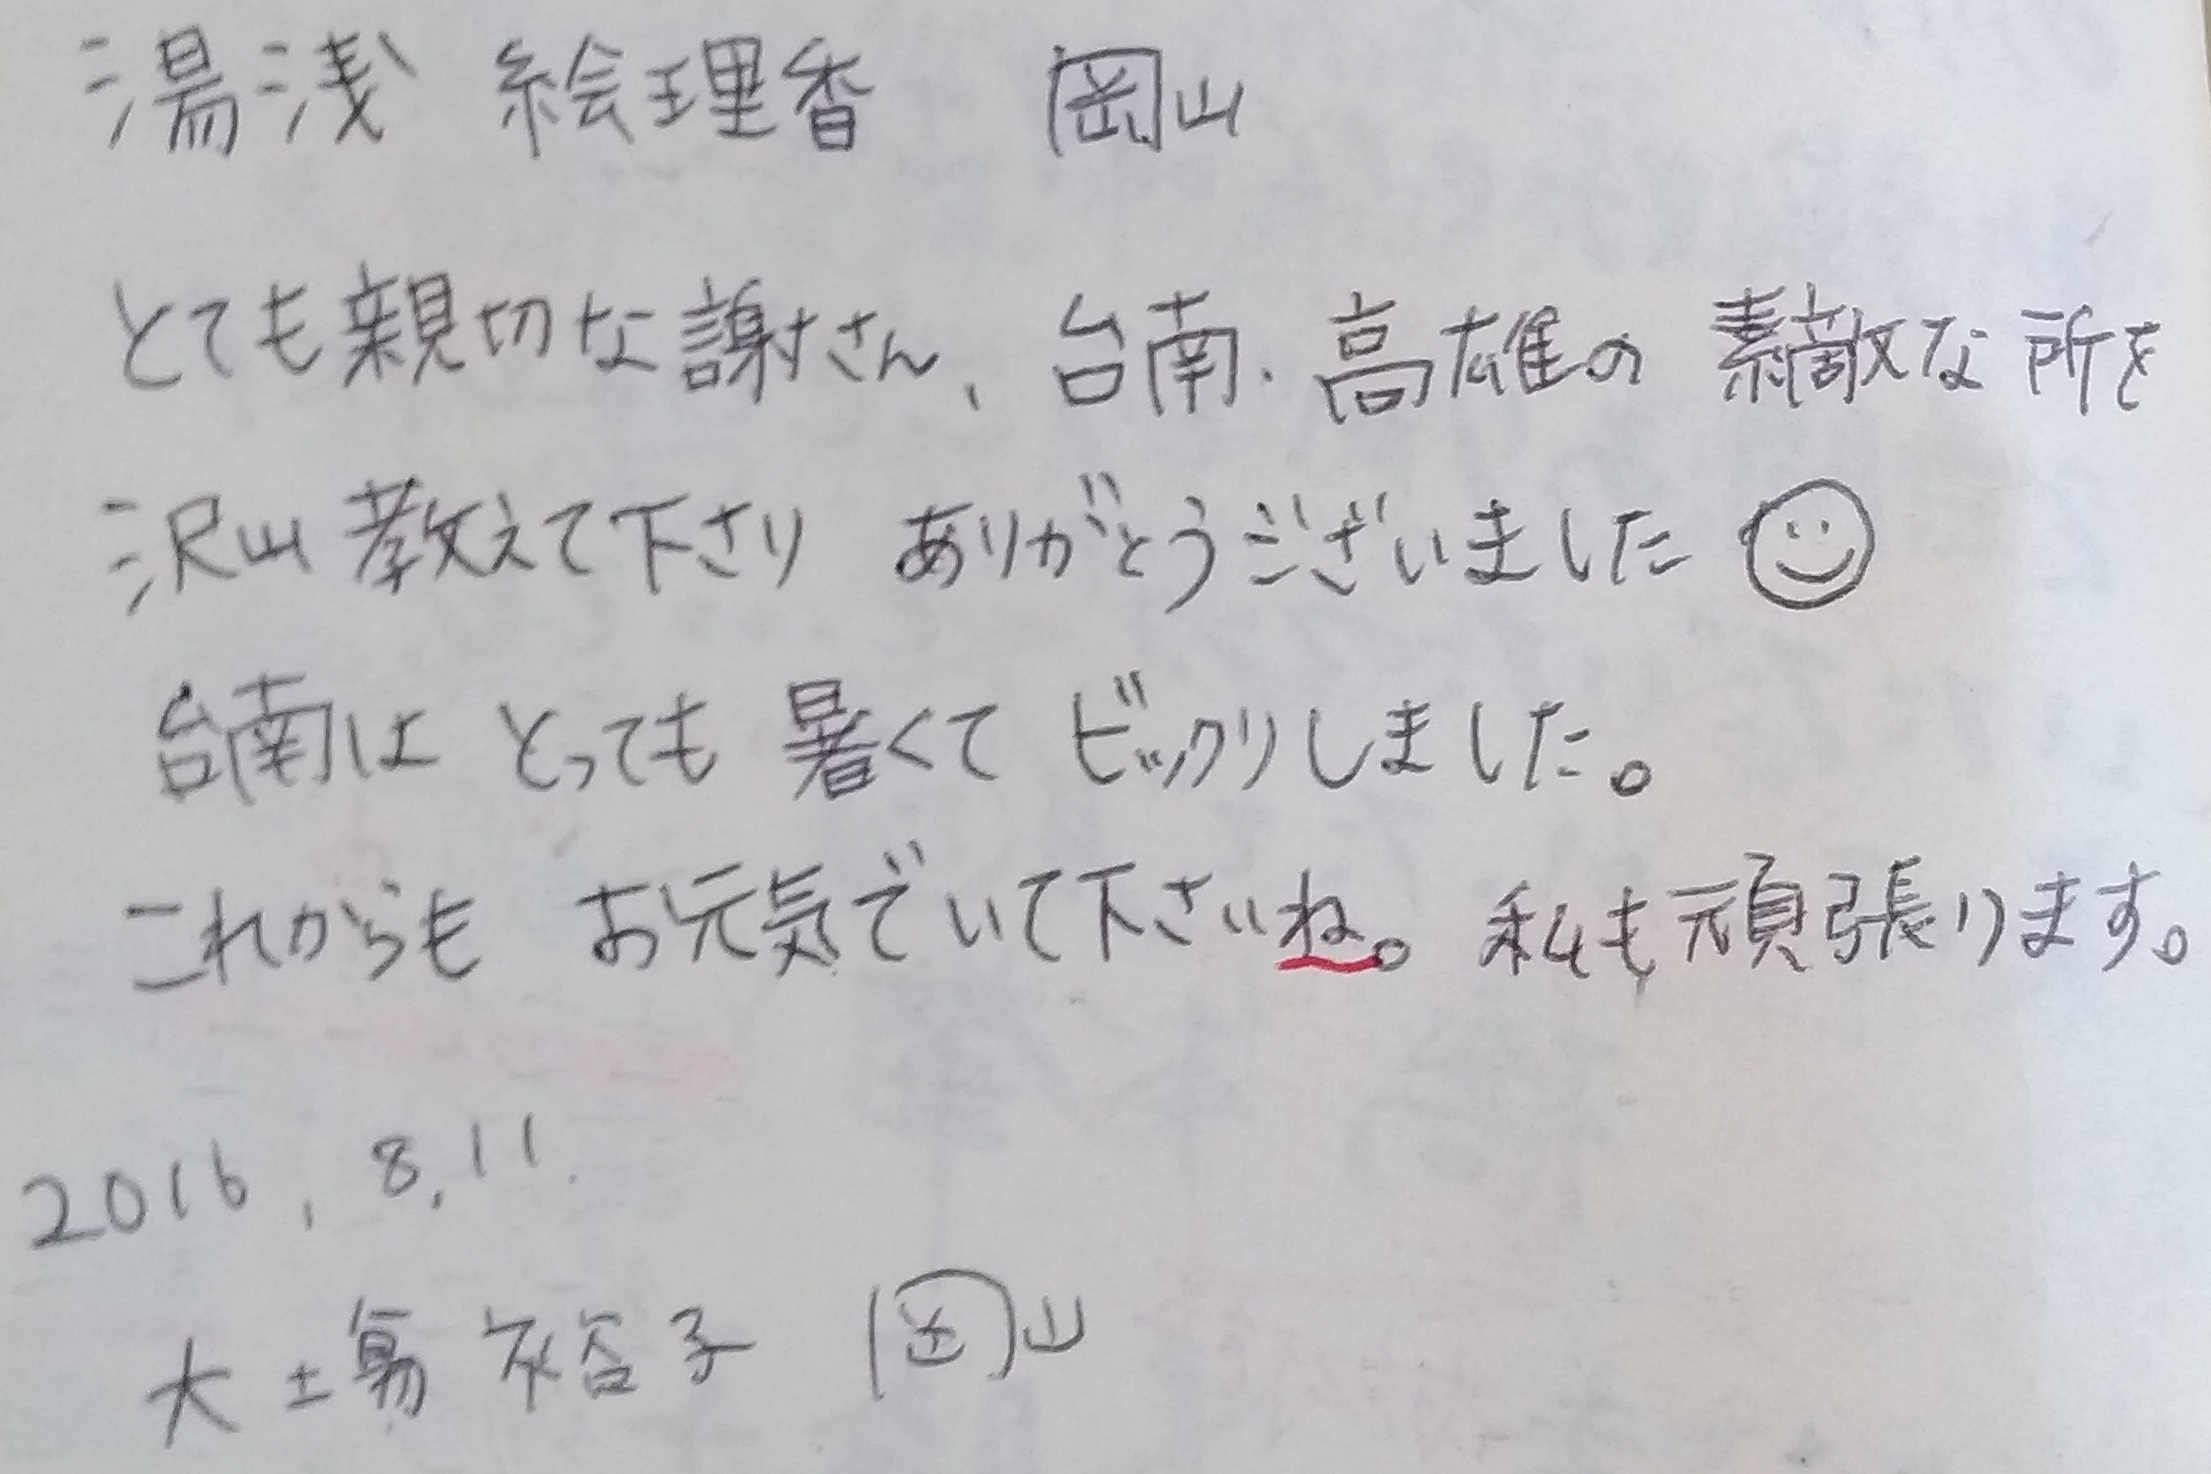 湯浅 絵理香 岡山
とても親切な謝さん、台南、高雄の素敵な所を
沢山教えて下さり ありがとうございました
台南は とっても 暑くて ビックリしました。
これからも お元気でいて下さいね。私も頑張ります。
2016, 8, 11.
大土場 裕子 岡山